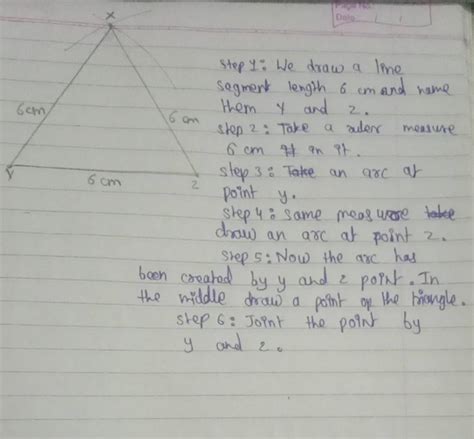 Page No.
Date / /
X
Step 1: We draw a line
segment length 6 cm and name
them Y and Z.
Step 2: Take a ruler measure
6 cm on it.
Step 3: Take an arc at
point y.
Step 4: Same measure
draw an arc at point z.
Step 5: Now the arc has
been created by y and z point. In
the middle draw a point of the triangle.
Step 6: Joint the point by
y and z.
6cm
6 cm
Y
6 cm
Z